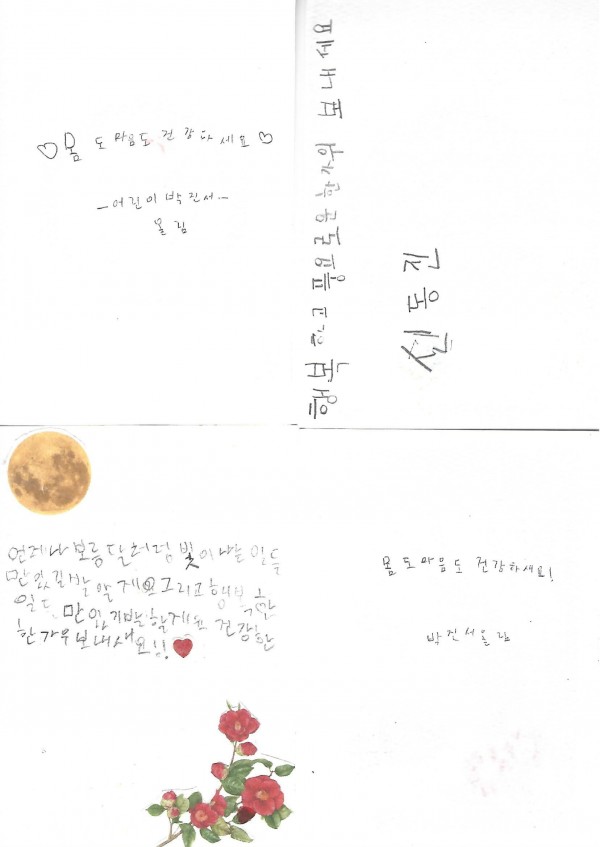 ♡몸도 마음도 건강하세요♡
-어린이 박진서-
올림
행복하고 풍요로운 한가위 보내세요
신동진
언제나 보름달처럼 빛이나는 일들
만 있길바랄게요 그리고 행복한
일도 만 있기바랄게요 건강한
한가위보내새요!!♥
몸도 마음도 건강하세요!
박진서올림